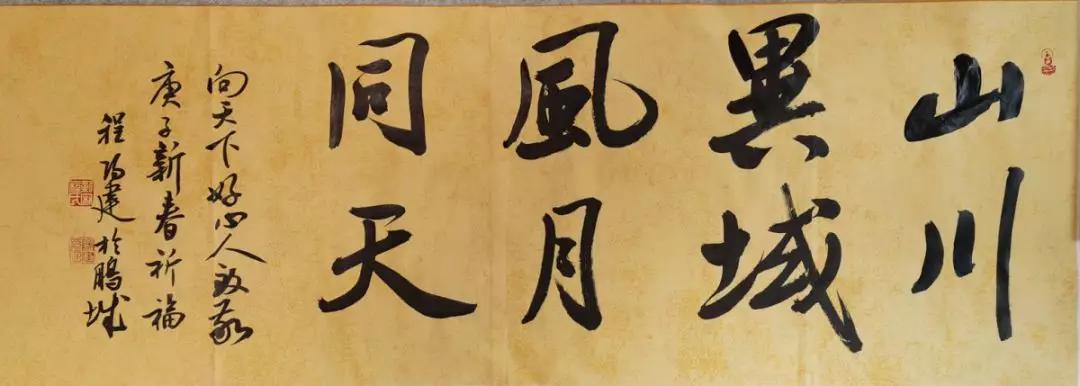 山川
異域
風月
同天
向天下好心人致敬
庚子新春祈福
程建於鵬城